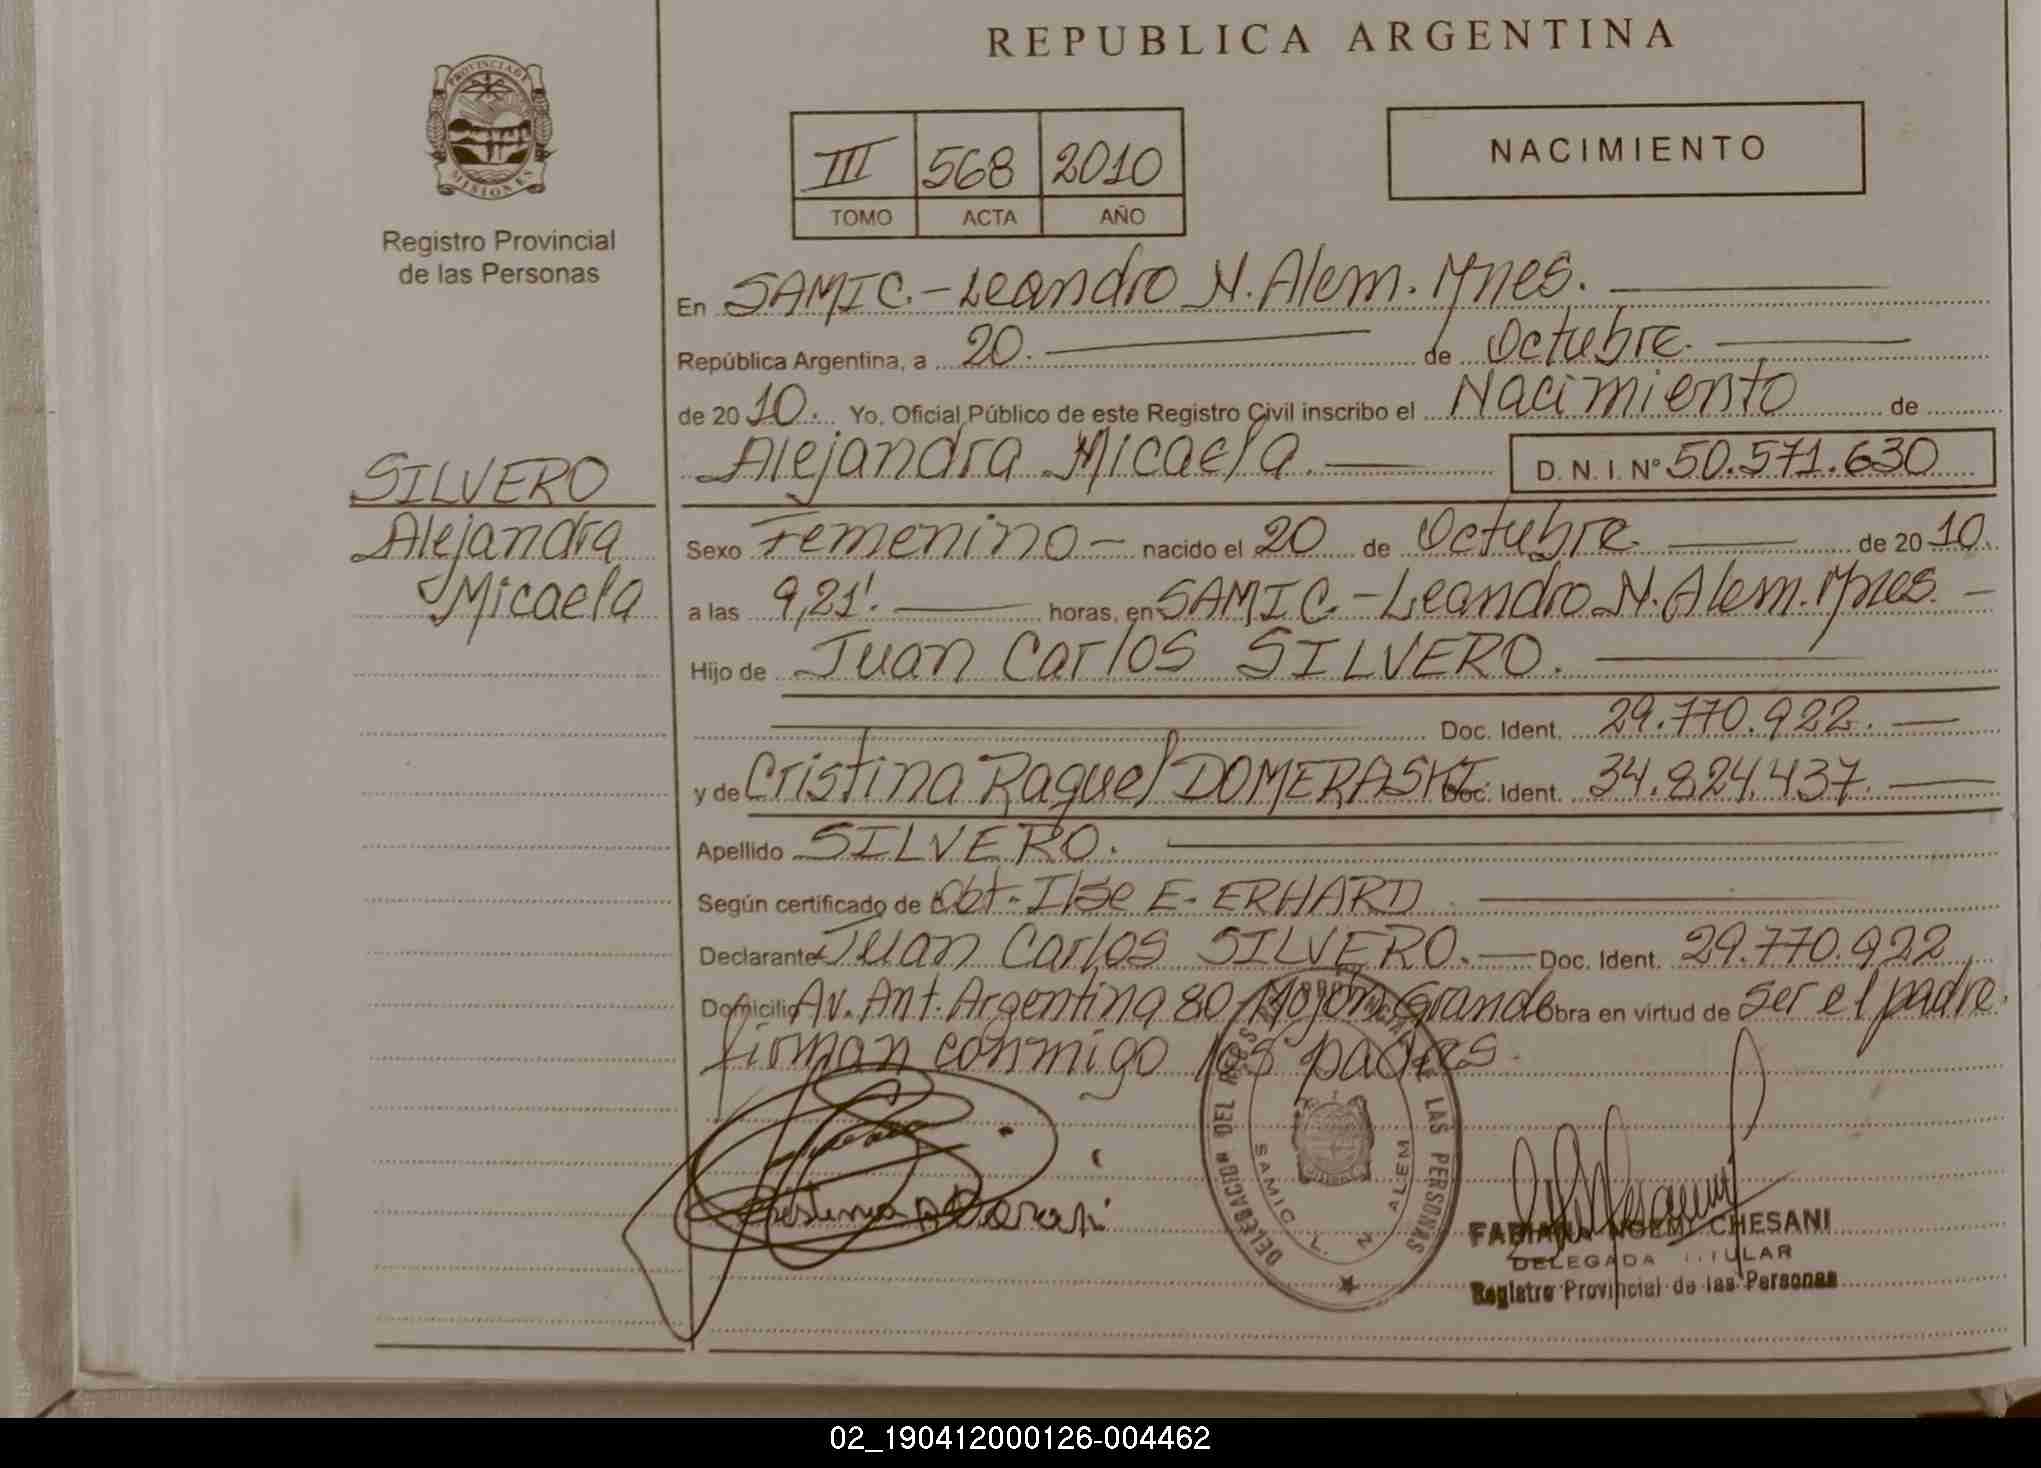 REPUBLICA ARGENTINA
PROVINCIA DE
MISIONES
Registro Provincial
de las Personas
III 568 2010
TOMO ACTA AÑO
NACIMIENTO
En SAMIC.- Leandro N. Alem. Mnes.
República Argentina, a 20. de Octubre.
de 2010. Yo, Oficial Público de este Registro Civil inscribo el Nacimiento de
Alejandra Micaela. D. N. I. Nº 50.571.630
SILVERO
Alejandra
Micaela
Sexo Femenino - nacido el 20 de Octubre. de 2010.
a las 9,21'. horas, en SAMIC.- Leandro N. Alem. Mnes. -
Hijo de Juan Carlos SILVERO.
Doc. Ident. 29.770.922.
y de Cristina Raquel DOMERASKI. Doc. Ident. 34.824.437.
Apellido SILVERO.
Según certificado de Obt. Ilse E. ERHARD
Declarante Juan Carlos SILVERO. Doc. Ident. 29.770.922
Domicilio Av. Ant. Argentina 80 Mojón Grande Obra en virtud de ser el padre.
firman conmigo los padres.
DELEGACION DEL LAS PERSONAS
SAMIC L. N. ALEM
FABIANA NOEMI CHESANI
DELEGADA TITULAR
Registro Provincial de las Personas
02_190412000126-004462